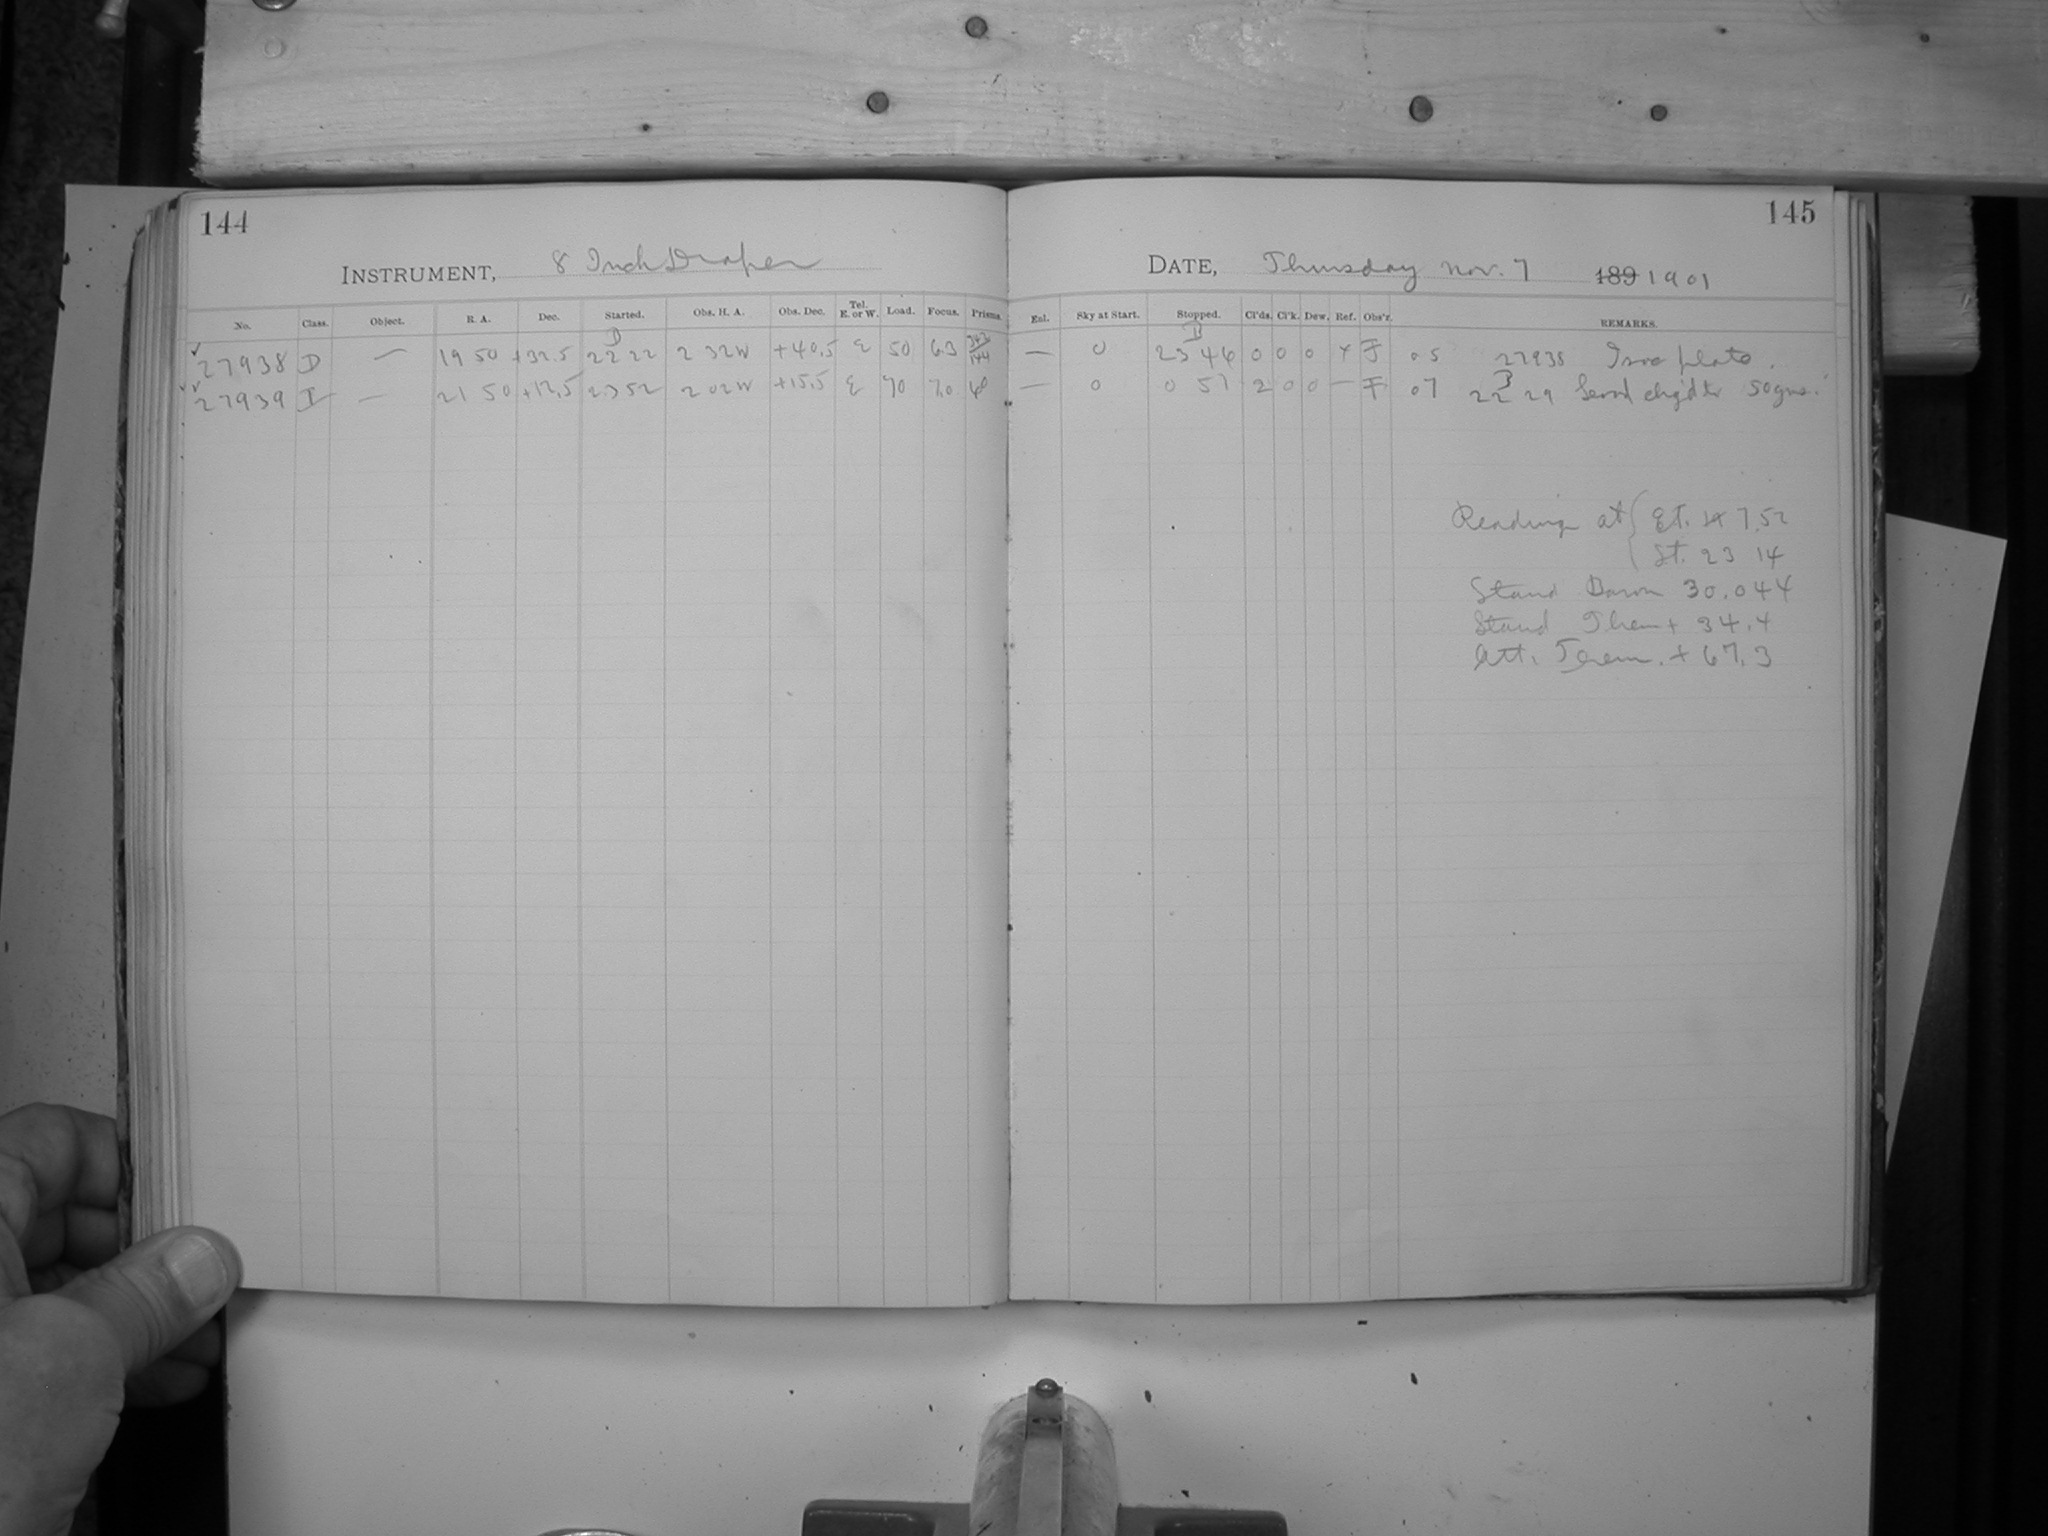 144
INSTRUMENT, 8 Inch Draper
No. Class. Object. R. A. Dec. Started. Obs. H. A. Obs. Dec. Tel. E. or W. Load. Focus. Prisms.
27938 D — 19 50 +32.5 22 22 2 32W +40.5 E 50 63
27939 I — 21 50 +12.5 23 52 2 02W +15.5 E 70 7.0
145
DATE, Thursday Nov. 7 189 1901
Enl. Sky at Start. Stopped. Cl'ds. Cl'k. Dew. Ref. Obs'r. REMARKS.
— 0 23 46 0 0 0 F 05 27938 Iso plate.
— 0 0 57 2 0 0 — F 07 22 29 50 gms.
Reading at { Et. 7.52
St. 23 14
Stand Barom 30.044
Stand Them + 34.4
Att. Therm. + 67.3